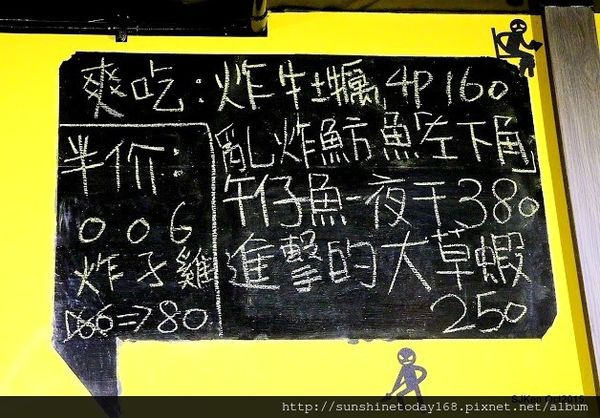 爽吃:炸牡蠣,4P 160
半价:
006
炸子雞
160⇒80
亂炸魴魚「左下角」
午仔魚一夜干380
進擊的大草蝦
250
http://sunshinetoday168.pixnet.net/album